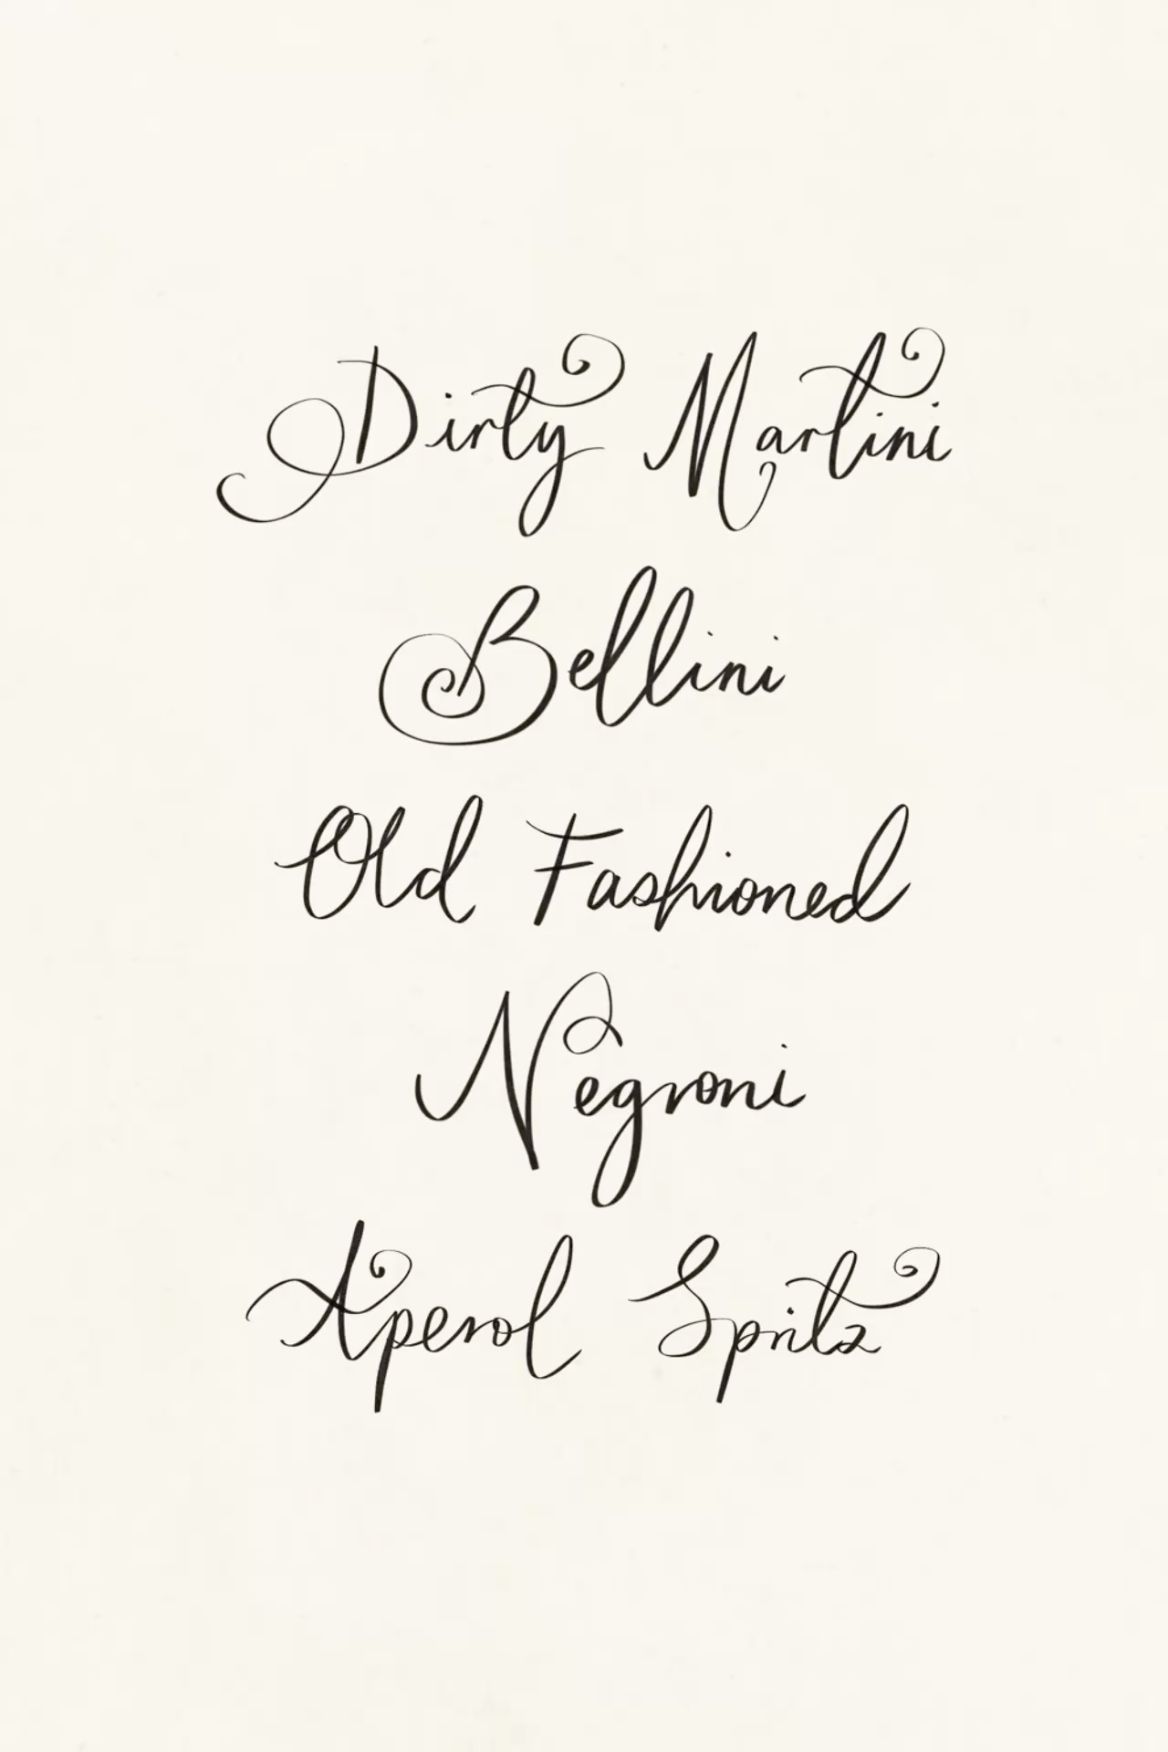 Dirty Martini
Bellini
Old Fashioned
Negroni
Aperol Spritz